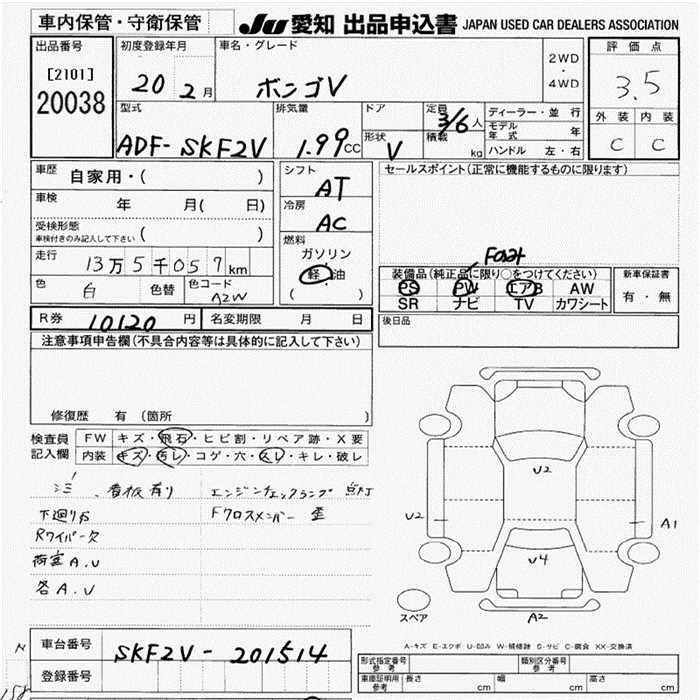 車内保管・守衛保管
JU 愛知 出品申込書 JAPAN USED CAR DEALERS ASSOCIATION
出品番号
[2101]
20038
初度登録年月
20 2月
車名・グレード
ボンゴV
2WD
・
4WD
評価点
3.5
外装 内装
C C
型式
ADF-SKF2V
排気量
1.99cc
ドア
形状
V
定員
積載
3/6人
kg
ディーラー・並行
モデル年式 年
ハンドル 左・右
車歴
自家用・( )
車検
年 月( 日)
受検形態
車検付きのみ記入して下さい ( )
走行
13万5千057km
色
白
色替
色コード
A2W
シフト
AT
冷房
AC
燃料
ガソリン
軽油
( )
セールスポイント(正常に機能するものに限ります)
装備品(純正品に限り○をつけてください)
PS PW エアB AW
SR ナビ TV カワシート
新車保証書
有・無
後日品
R券 10120円
名変期限 月 日
注意事項申告欄(不具合内容等は具体的に記入して下さい)
修復歴 有(箇所 )
検査員
記入欄
FW キズ・飛石・ヒビ割・リペア跡・X要
内装 キズ・汚レ・コゲ・穴・スレ・キレ・破レ
注! 看板有り
エンジンチェックランプ 点灯
下廻りサ
Fクロスメンバー 歪
Rワイパー欠
荷室A.U
各A.U
U2
U2
A1
U4
A2
スペア
A-キズ E-エクボ U-凹み W-補修跡 S-サビ C-腐食 XX-交換済
車台番号
SKF2V-201514
登録番号
形式指定番号
参考
類別区分番号
参考
車庫証明用
参考
長さ cm
幅 cm
高さ cm